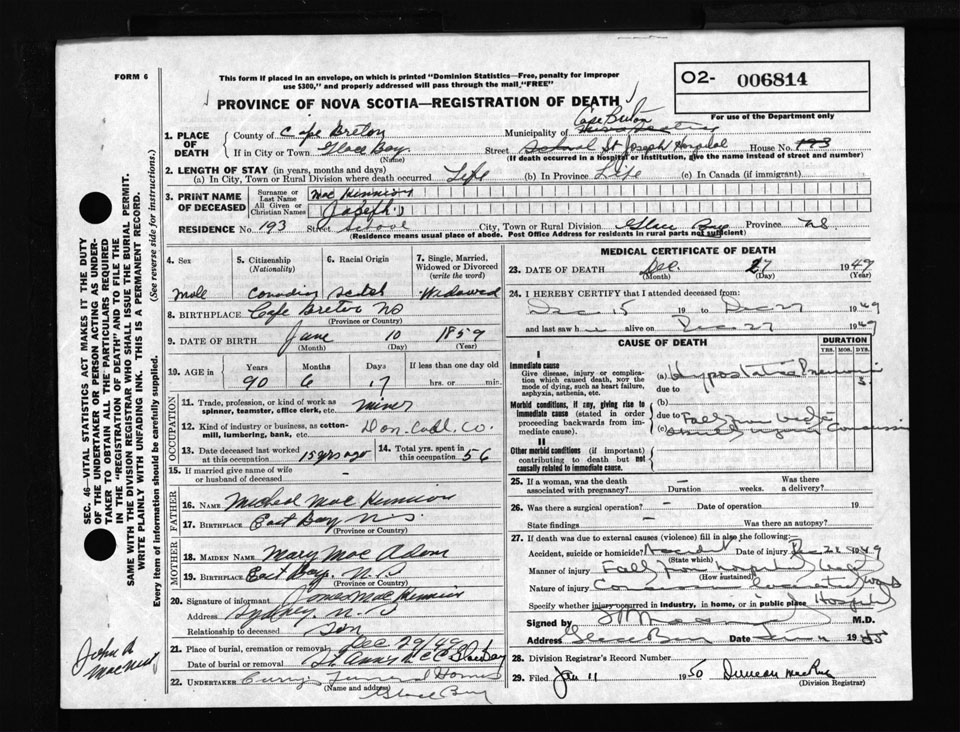 FORM 6
This form if placed in an envelope, on which is printed "Dominion Statistics—Free, penalty for improper
use $300," and properly addressed will pass through the mail "FREE"
O2- 006814
For use of the Department only
PROVINCE OF NOVA SCOTIA—REGISTRATION OF DEATH
1. PLACE OF DEATH County of Cape Breton Municipality of Cape Breton
If in City or Town Glace Bay (Name) Street School St Joseph Hospital House No. 193
(If death occurred in a hospital or institution, give the name instead of street and number)
2. LENGTH OF STAY (in years, months and days)
(a) In City, Town or Rural Division where death occurred Life (b) In Province Life (c) In Canada (if immigrant)
3. PRINT NAME OF DECEASED Surname or Last Name Mac Kinnon
All Given or Christian Names Joseph
RESIDENCE No. 193 Street School City, Town or Rural Division Glace Bay Province NS
(Residence means usual place of abode. Post Office Address for residents in rural parts not sufficient)
4. Sex 5. Citizenship (Nationality) 6. Racial Origin 7. Single, Married, Widowed or Divorced (write the word)
Male Canadian Scotch Widowed
8. BIRTHPLACE Cape Breton NS
(Province or Country)
9. DATE OF BIRTH June 10 1859
(Month) (Day) (Year)
10. AGE in Years Months Days If less than one day old
90 6 17 hrs. or min.
OCCUPATION
11. Trade, profession, or kind of work as spinner, teamster, office clerk, etc. miner
12. Kind of industry or business, as cotton-mill, lumbering, bank, etc. Dom. Coal Co.
13. Date deceased last worked at this occupation 15 yrs ago 14. Total yrs. spent in this occupation 56
15. If married give name of wife or husband of deceased —
FATHER
16. NAME Micheal Mac Kinnon
17. BIRTHPLACE East Bay N.S.
(Province or Country)
MOTHER
18. MAIDEN NAME Mary Mac Adam
19. BIRTHPLACE East Bay N.S
(Province or Country)
20. Signature of informant James Mac Kinnon
Address Sydney N.S
Relationship to deceased Son
21. Place of burial, cremation or removal
Dec 29/49
Date of burial or removal St Anns Glace Bay
22. UNDERTAKER Curry's Funeral Home
(Name and address) Glace Bay
MEDICAL CERTIFICATE OF DEATH
23. DATE OF DEATH Dec. 27 1949
(Month) (Day) (Year)
24. I HEREBY CERTIFY that I attended deceased from:
Dec 15 19 to Dec 27 1949
and last saw h alive on Dec 27 1949
CAUSE OF DEATH DURATION
YRS. MOS. DYS.
I
Immediate cause
Give disease, injury or complication which caused death, not the mode of dying, such as heart failure, asphyxia, asthenia, etc.
(a) Hypostatic Pneumonia 3
due to
Morbid conditions, if any, giving rise to immediate cause (stated in order proceeding backwards from immediate cause).
(b)
due to Fall
(c) Concussion
II
Other morbid conditions (if important) contributing to death but not causally related to immediate cause.
25. If a woman, was the death associated with pregnancy? — Duration weeks Was there a delivery?
26. Was there a surgical operation? — Date of operation 19
State findings — Was there an autopsy?
27. If death was due to external causes (violence) fill in also the following:—
Accident, suicide or homicide? Accident (State which) Date of injury Dec 1949
Manner of injury Fall from hospital
(How sustained)
Nature of injury Concussion
Specify whether injury occurred in industry, in home, or in public place Hospital
Signed by M.D.
Address Glace Bay Date 19
28. Division Registrar's Record Number
29. Filed Jan 11 1950 Duncan MacRae
(Division Registrar)
SEC. 46—VITAL STATISTICS ACT MAKES IT THE DUTY
OF THE UNDERTAKER OR PERSON ACTING AS UNDER-
TAKER TO OBTAIN ALL THE PARTICULARS REQUIRED
IN THE "REGISTRATION OF DEATH" AND TO FILE THE
SAME WITH THE DIVISION REGISTRAR WHO SHALL ISSUE THE BURIAL PERMIT.
WRITE PLAINLY WITH UNFADING INK. THIS IS A PERMANENT RECORD.
Every item of information should be carefully supplied. (See reverse side for instructions.)
John A
MacNeil